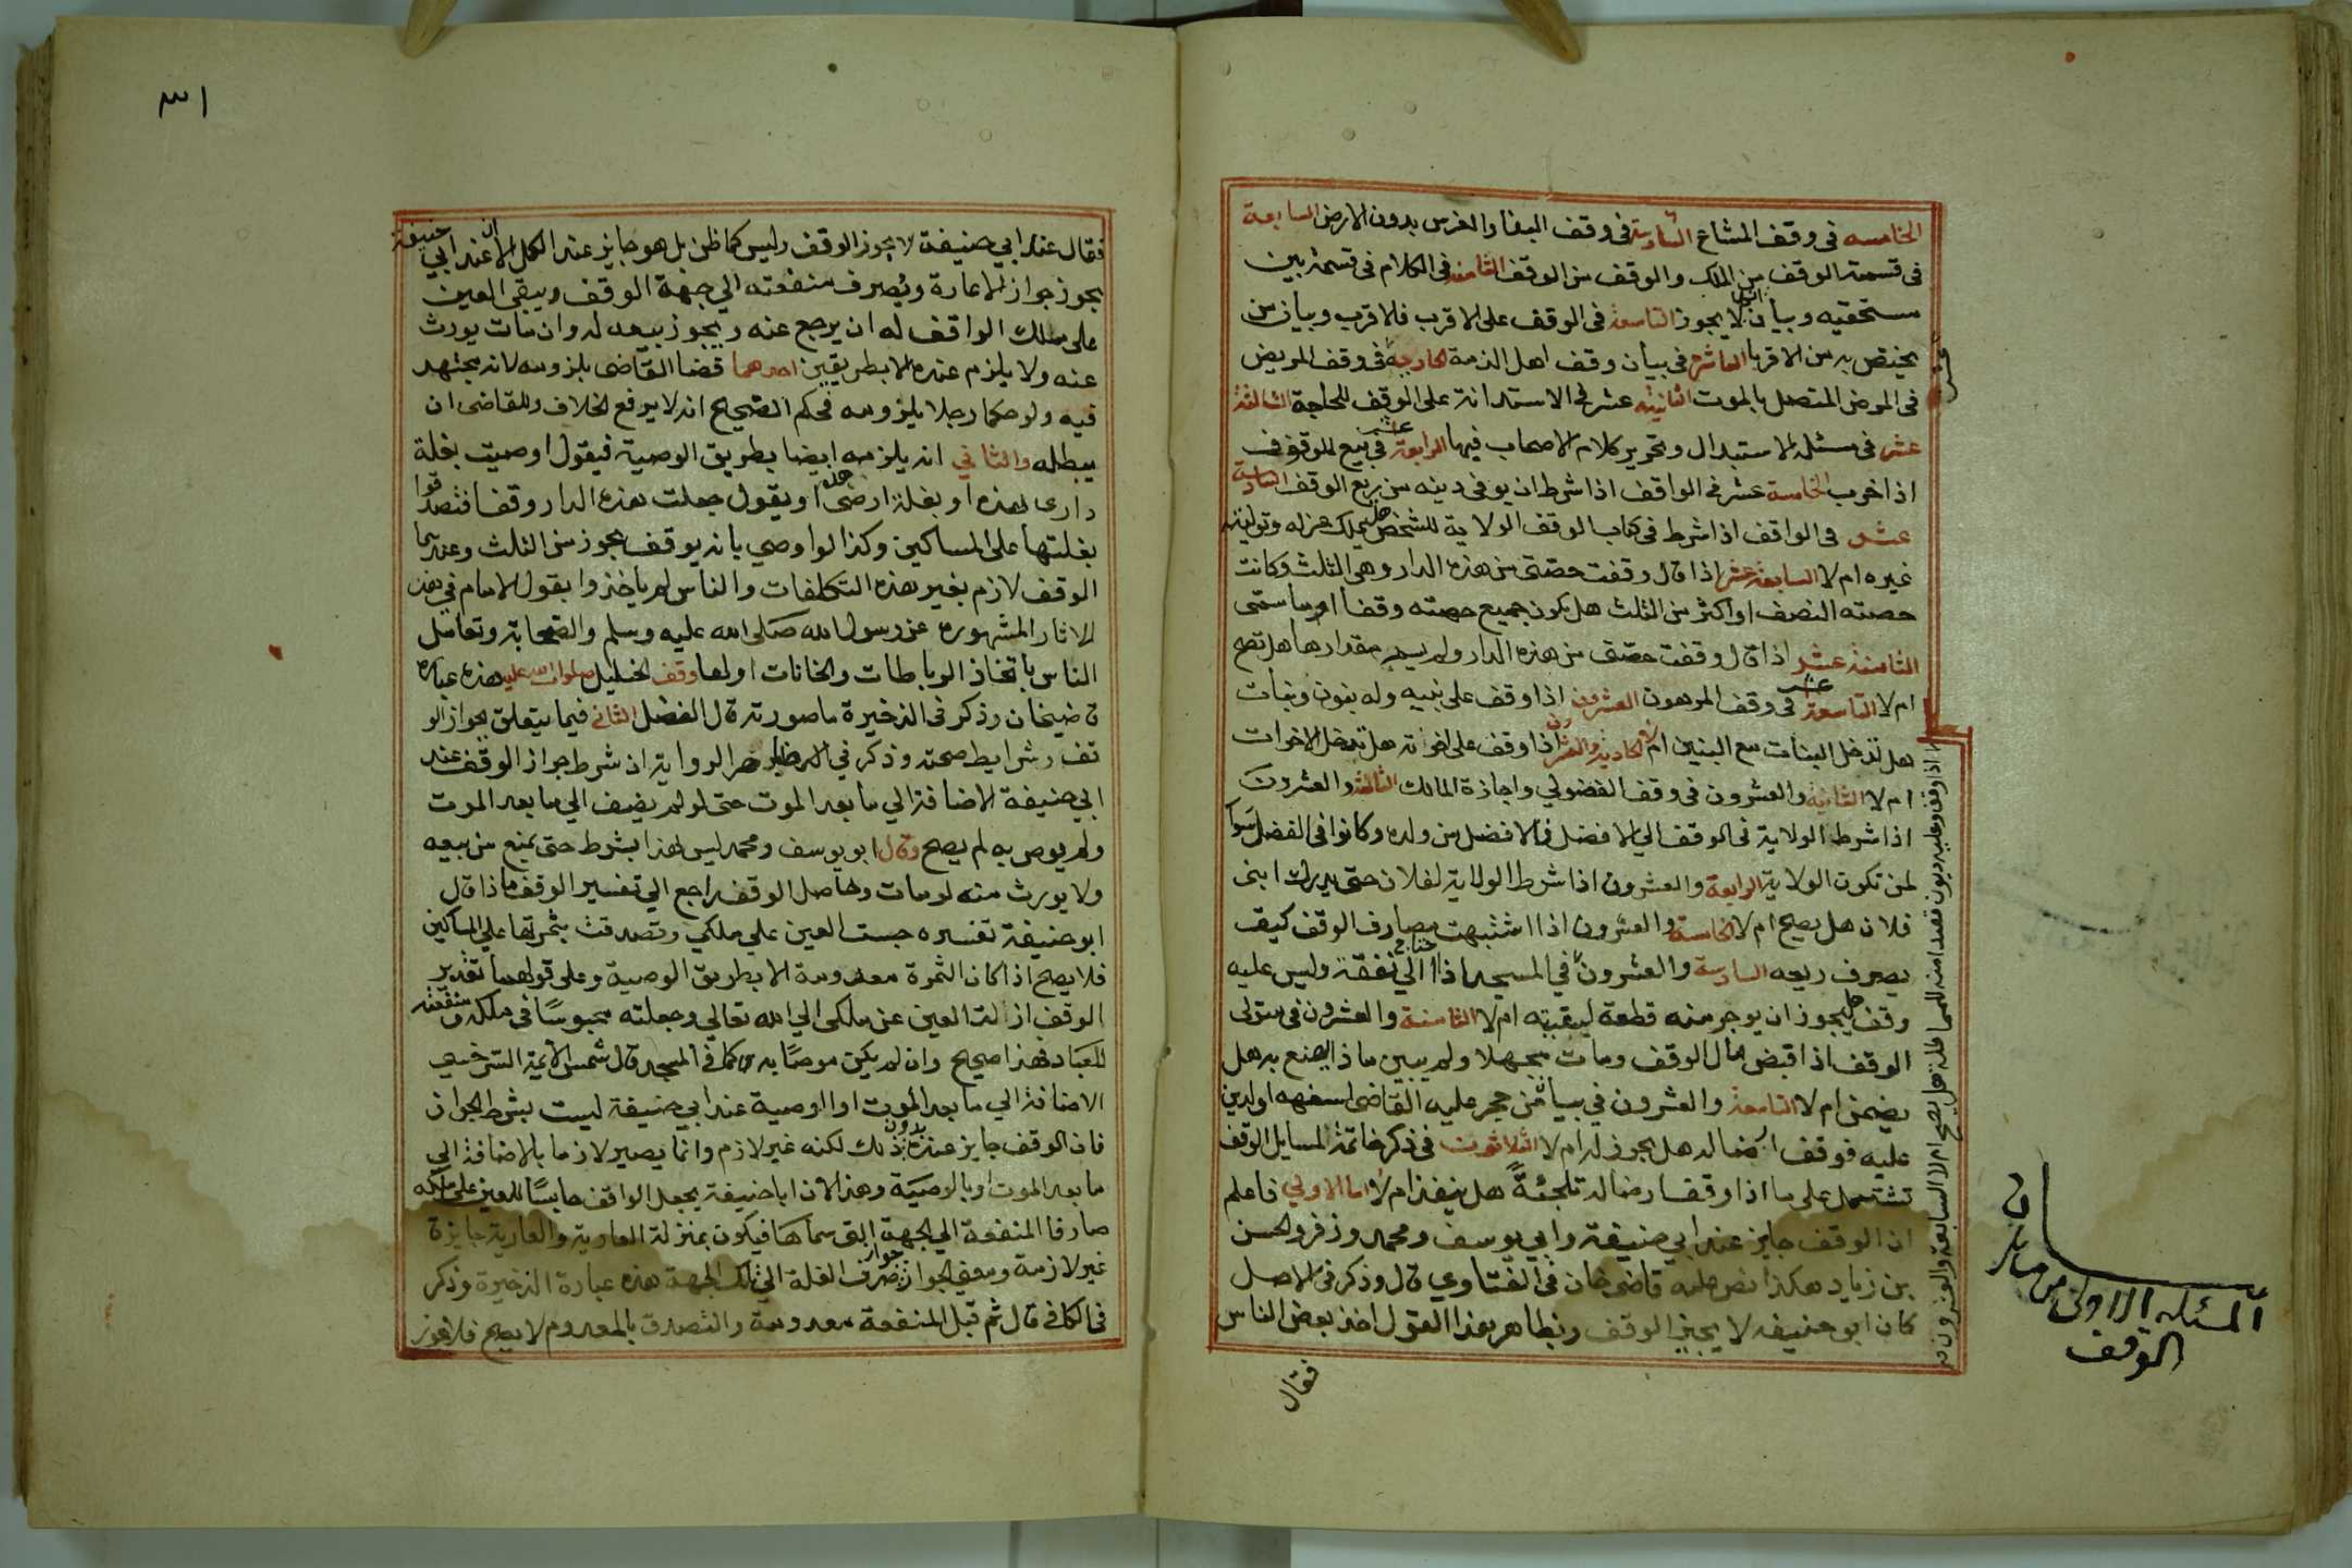 الخامسه في وقف المشاع السادسة في وقف البنا والغرس بدون الارض السابعة
في قسمة الوقف من الملك والوقف من الوقف الثامنه في الكلام في قسمة بين
مستحقيه وبيان انه لا يجوز التاسعة في الوقف على الاقرب فالاقرب وبيان من
يختص به من الاقربا العاشرة في بيان وقف اهل الذمة الحادية في وقف المريض
في المرض المتصل بالموت الثانية عشر في الاستدانة على الوقف للحاجة الثالثة
عشر في مسئلة الاستبدال وتحرير كلام الاصحاب فيها الرابعة عشر في بيع الموقوف
اذا خرب الخامسة عشر في الواقف اذا شرط ان يوفي دينه من ريع الوقف السادسة
عشر في الواقف اذا شرط في كتاب الوقف الولاية للشخص هل يملك عزله وتولية
غيره ام لا السابعة عشر اذا قال وقفت حصتي من هذه الدار وهي الثلث وكانت
حصته النصف او اكثر من الثلث هل يكون جميع حصته وقفا او ما سمى
الثامنة عشر اذا قال وقفت حصتي من هذه الدار ولم يسم مقدارها هل تصح
ام لا التاسعة عشر في وقف المرهون العشرون اذا وقف على بنيه وله بنون وبنات
هل تدخل البنات مع البنين ام لا الحادية والعشرون اذا وقف على اخوته هل تدخل الاخوات
ام لا الثانية والعشرون في وقف الفضولي واجازة المالك الثالثة والعشرون
اذا شرط الولاية في الوقف الي الافضل فالافضل من ولده وكانوا في الفضل سوا
لمن تكون الولاية الرابعة والعشرون اذا شرط الولاية لفلان حتى يدرك ابني
فلان هل يصح ام لا الخامسة والعشرون اذا اشتبهت مصارف الوقف كيف
يصرف ريعه السادسة والعشرون في المسجد اذا احتاج الي نفقة وليس عليه
وقف هل يجوز ان يوجر منه قطعة لبقيته ام لا الثامنة والعشرون في متولي
الوقف اذا قبض مال الوقف ومات مجهلا ولم يبين ماذا يصنع به هل
يضمن ام لا التاسعة والعشرون في بيان من حجر عليه القاضي لسفهه او لدين
عليه فوقف ارضا له هل يجوز له ام لا الثلاثون في ذكر خاتمة لمسايل الوقف
تشتمل على ما اذا وقف ارضا له تلجئةً هل ينفذ ام لا اما الاولي فاعلم
ان الوقف جايز عند ابي حنيفة وابي يوسف ومحمد وزفر والحسن
بن زياد هكذا نص عليه قاضي خان في الفتاوي قال وذكر في الاصل
كان ابو حنيفه لا يجيز الوقف وبظاهر هذا القول اخذ بعض الناس
فقال
اذا وقف وعليه ديون قصدا منه للمماطلة هل يصح ام لا السابعة والعشرون
المسئله الاولى من مسايل
الوقف
٣١
فقال عند ابي حنيفة لا يجوز الوقف وليس كما ظن بل هو جايز عند الكل الا ان عند ابي حنيفة
يجوز جواز الاعارة ويصرف منفعته الي جهة الوقف ويبقي العين
على ملك الواقف له ان يرجع عنه ويجوز بيعه له وان مات يورث
عنه ولا يلزم عنده الا بطريقين احدهما قضا القاضي بلزومه لانه مجتهد
فيه ولو حكما رجلا بلزومه فحكم الصحيح انه لا يرفع الخلاف وللقاضي ان
يبطله والثاني انه يلزمه ايضا بطريق الوصية فيقول اوصيت بغلة
داري هذه او بغلة ارضي هذه او يقول جعلت هذه الدار وقفا فتصدقوا
بغلتها على المساكين وكذا لو اوصي بانه يوقف يجوز من الثلث وعندهما
الوقف لازم بغير هذه التكلفات والناس لم ياخذوا بقول الامام في هذه
الاثار المشهوره عن رسول الله صلى الله عليه وسلم والصحابة وتعامل
الناس باتخاذ الرباطات والخانات اولها وقف الخليل صلوات الله عليه هذه عبارة
قاضيخان وذكر في الذخيرة ما صورته قال الفصل الثاني فيما يتعلق بجواز الو
قف وشرايط صحته وذكر في ظاهر الرواية ان شرط جواز الوقف عند
ابي حنيفة الاضافة الي ما بعد الموت حتى لو لم يضيف الي ما بعد الموت
ولم يوص به لم يصح وقال ابو يوسف ومحمد ليس هذا بشرط حتى يمنع من بيعه
ولا يورث منه لو مات وحاصل الوقف راجع الي تفسير الوقف ماذا قال
ابو حنيفة تفسيره حبست العين علي ملكي وتصدقت بثمرتها علي المساكين
فلا يصح اذا كان الثمرة معدومة الا بطريق الوصية وعلى قولهما تقدير
الوقف ازالت العين عن ملكي الي الله تعالي وجعلته محبوسًا في ملكه ومنفعته
للعباد فهذا صحيح وان لم يكن موصًا به كما في المسجد قال شمس الائمة السرخسي
الاضافة الي ما بعد الموت او الوصية عند ابي حنيفة ليست بشرط الجواز
فان الوقف جايز عنده بدون ذلك لكنه غير لازم وانما يصير لازما بالاضافة الي
ما بعد الموت او بالوصيّة وهذا لان ابا حنيفة يجعل الواقف حابسًا للعين على ملكه
صارفا المنفعة الي الجهة التي سماها فيكون بمنزلة العارية والعارية جايزة
غير لازمة ومعني الجواز جواز صرف الغلة الي تلك الجهة هذه عبارة الذخيرة وذكر
في الكافي قال ثم قبل المنفعة معدومة والتصدق بالمعدوم لا يصح فلا يجوز